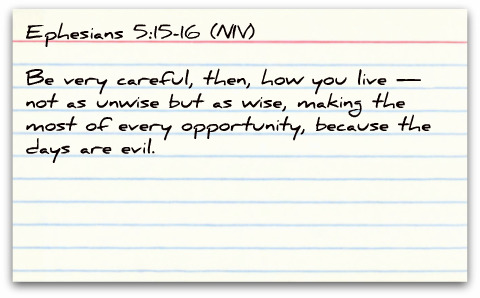 Ephesians 5:15-16 (NIV)
Be very careful, then, how you live —
not as unwise but as wise, making the
most of every opportunity, because the
days are evil.